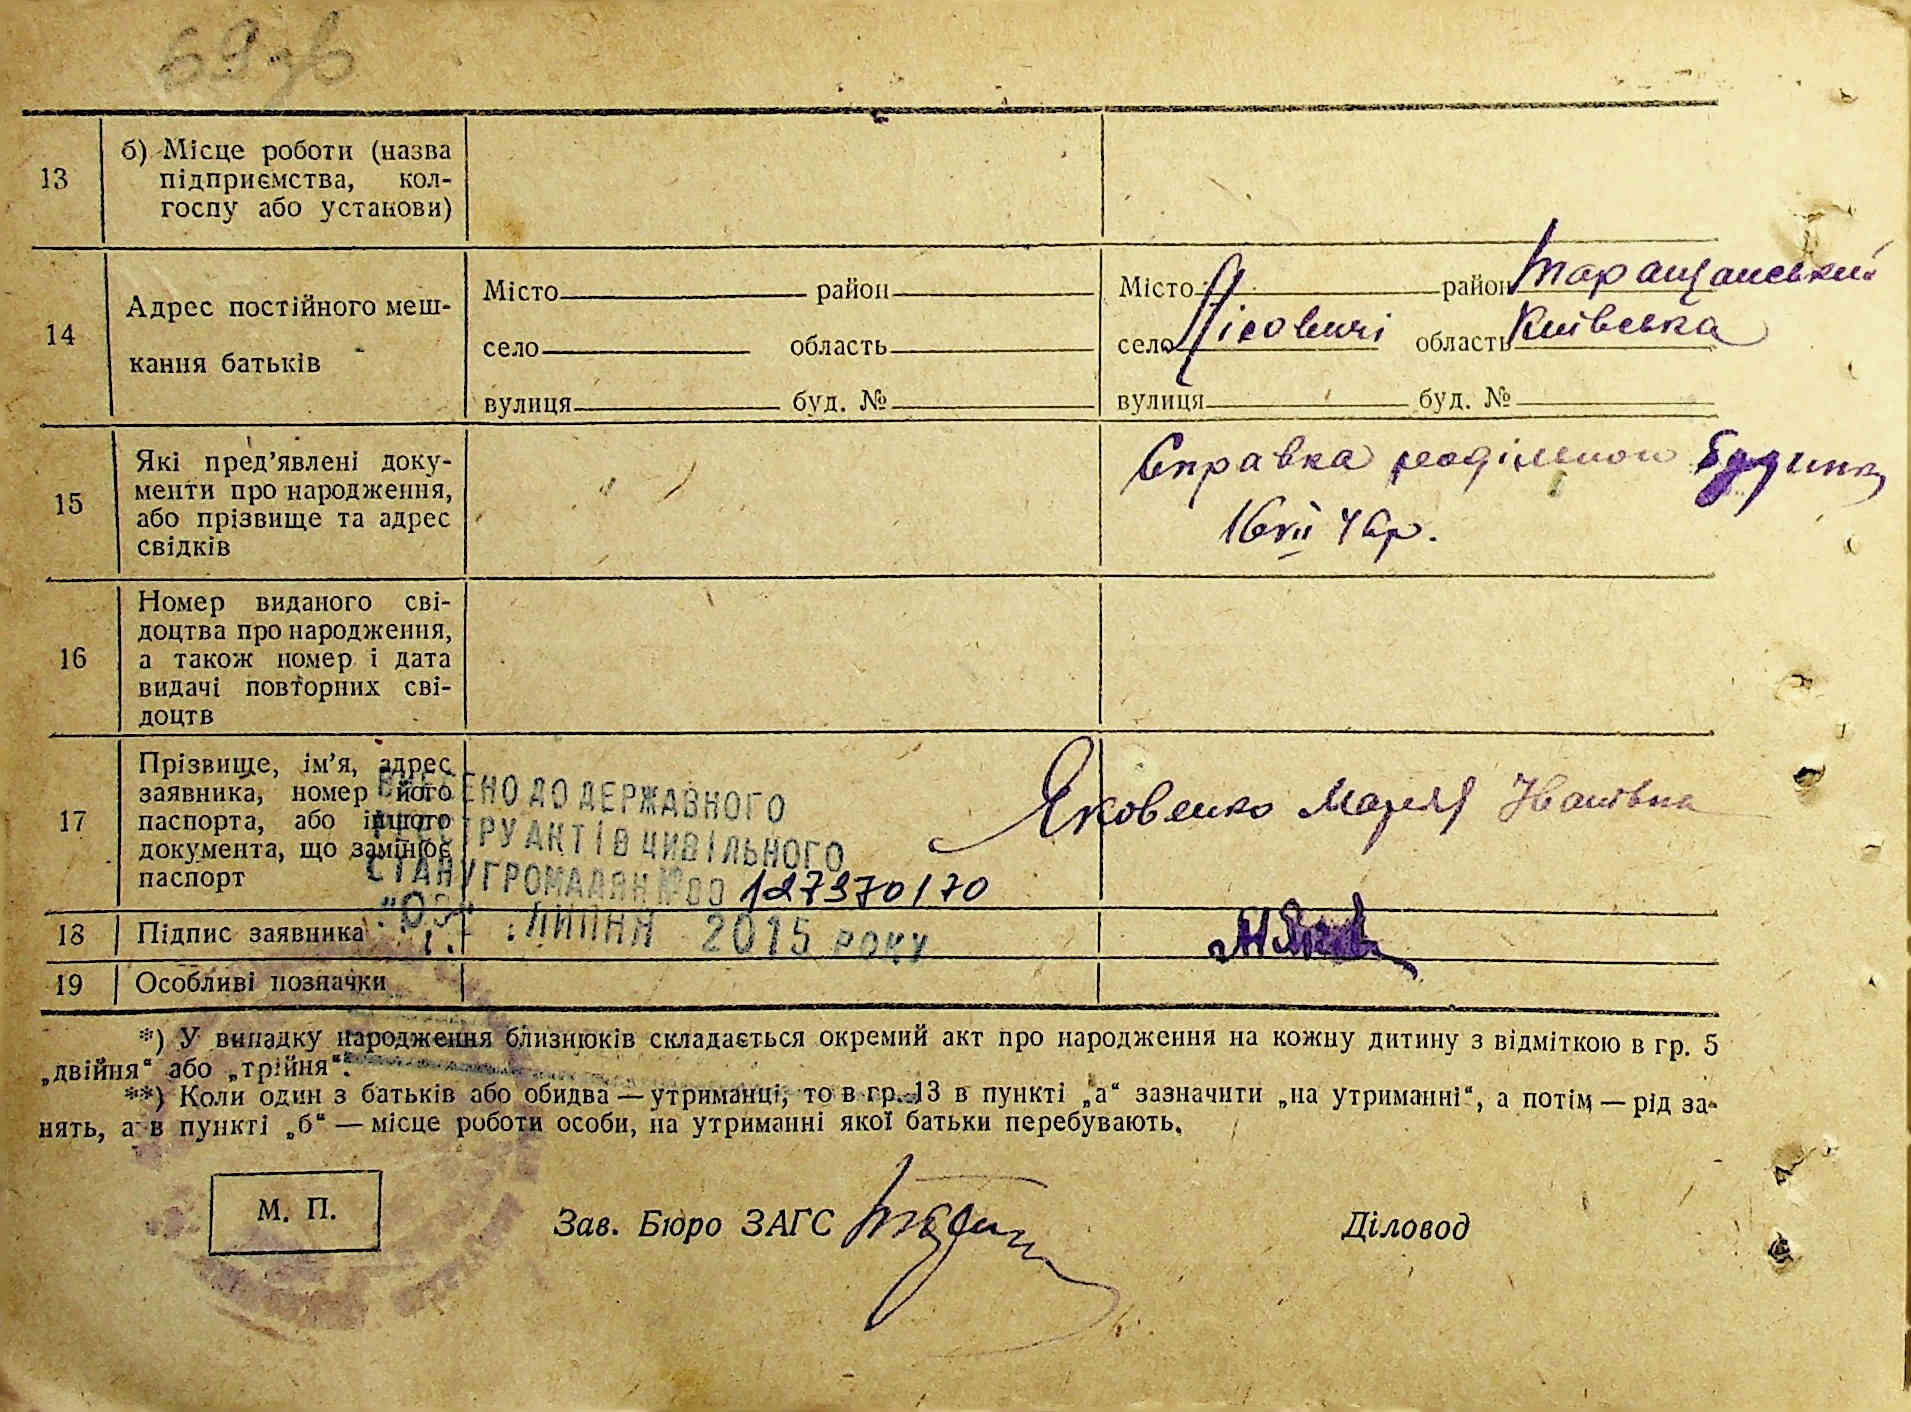 69 зв
13
б) Місце роботи (назва
підприємства, кол-
госпу або установи)
14
Адрес постійного меш-
кання батьків
Місто район
село область
вулиця буд. №
Місто район Таращанський
село Лісовичі область Київська
вулиця буд. №
15
Які пред’явлені доку-
менти про народження,
або прізвище та адрес
свідків
Справка родільного будинку
16/VII 46р.
16
Номер виданого сві-
доцтва про народження,
а також номер і дата
видачі повторних сві-
доцтв
17
Прізвище, ім’я, адрес
заявника, номер його
паспорта, або іншого
документа, що замінює
паспорт
Яковенко Марія Іванівна
ВНЕСЕНО ДО ДЕРЖАВНОГО
РЕЄСТРУ АКТІВ ЦИВІЛЬНОГО
СТАНУ ГРОМАДЯН №00 127370170
"03" ЛИПНЯ 2015 РОКУ
18
Підпис заявника
19
Особливі позначки
*) У випадку народження близнюків складається окремий акт про народження на кожну дитину з відміткою в гр. 5
„двійня“ або „трійня“.
**) Коли один з батьків або обидва — утриманці, то в гр. 13 в пункті „а“ зазначити „на утриманні“, а потім — рід за-
нять, а в пункті „б“ — місце роботи особи, на утриманні якої батьки перебувають.
М. П.
Зав. Бюро ЗАГС
Діловод